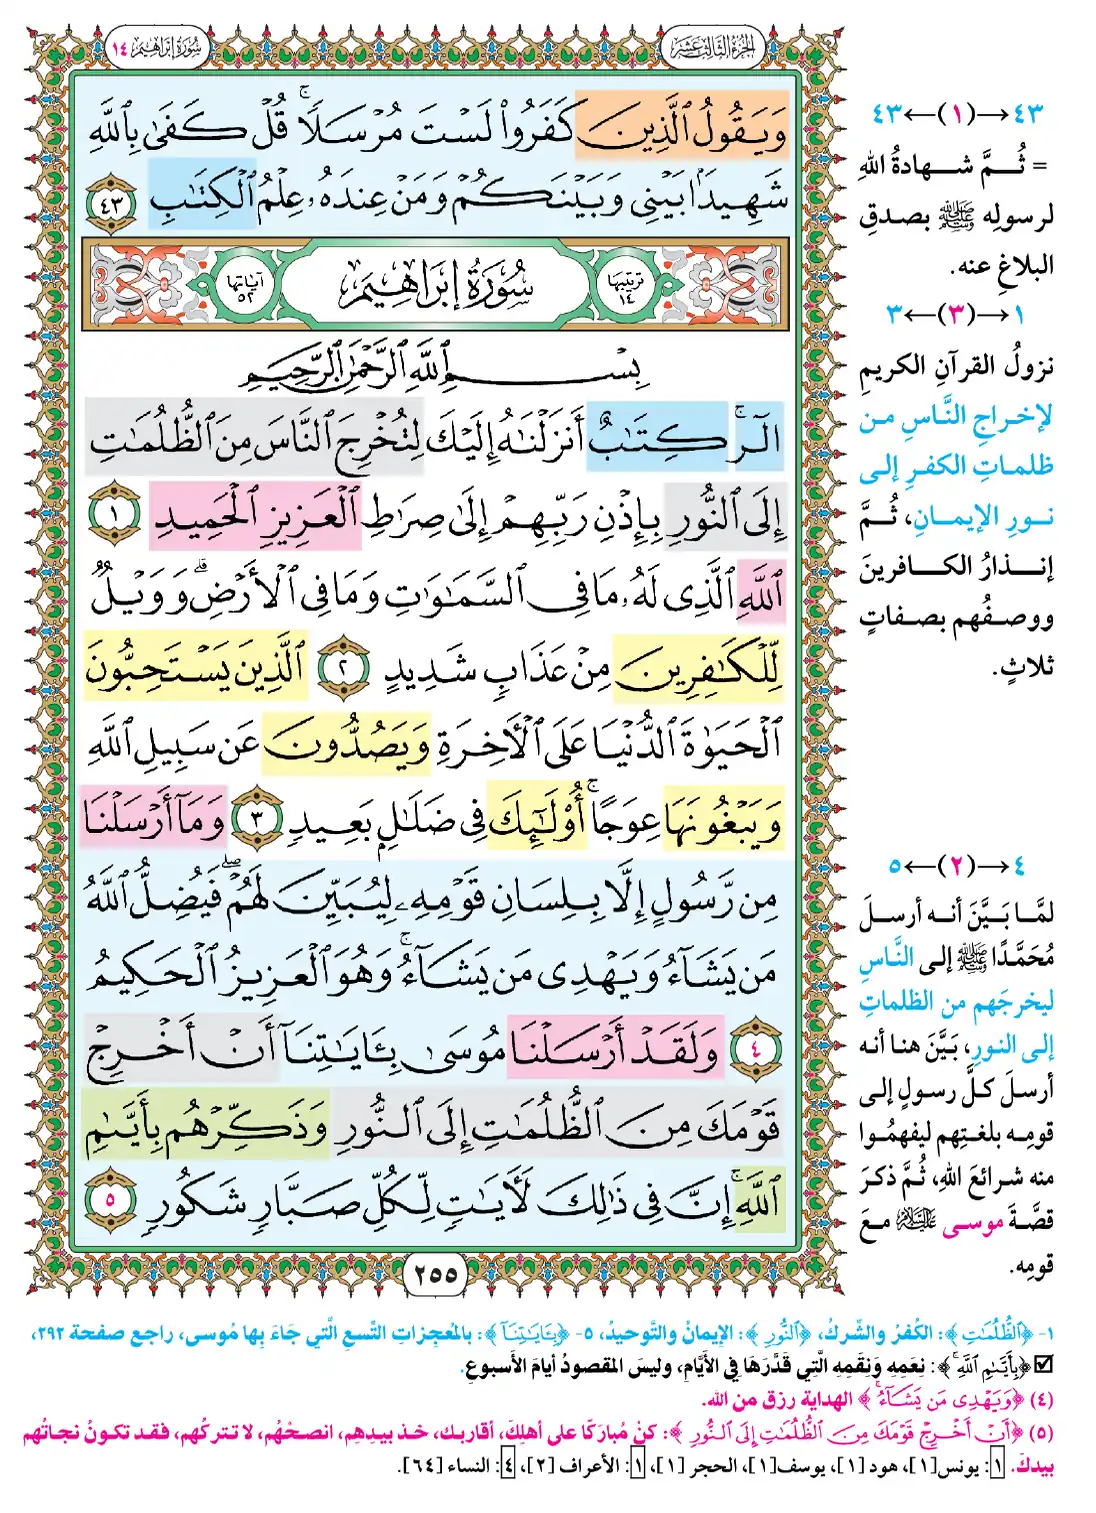 الجزء الثالث عشر
سورة إبراهيم ١٤
وَيَقُولُ ٱلَّذِينَ كَفَرُوا۟ لَسْتَ مُرْسَلًا ۚ قُلْ كَفَىٰ بِٱللَّهِ
شَهِيدًۢا بَيْنِى وَبَيْنَكُمْ وَمَنْ عِندَهُۥ عِلْمُ ٱلْكِتَـٰبِ ٤٣
ترتيبها ١٤
سُورَةُ إِبْرَاهِيمَ
آياتها ٥٢
بِسْمِ ٱللَّهِ ٱلرَّحْمَـٰنِ ٱلرَّحِيمِ
الٓر ۚ كِتَـٰبٌ أَنزَلْنَـٰهُ إِلَيْكَ لِتُخْرِجَ ٱلنَّاسَ مِنَ ٱلظُّلُمَـٰتِ
إِلَى ٱلنُّورِ بِإِذْنِ رَبِّهِمْ إِلَىٰ صِرَٰطِ ٱلْعَزِيزِ ٱلْحَمِيدِ ١
ٱللَّهِ ٱلَّذِى لَهُۥ مَا فِى ٱلسَّمَـٰوَٰتِ وَمَا فِى ٱلْأَرْضِ ۗ وَوَيْلٌ
لِّلْكَـٰفِرِينَ مِنْ عَذَابٍ شَدِيدٍ ٢ ٱلَّذِينَ يَسْتَحِبُّونَ
ٱلْحَيَوٰةَ ٱلدُّنْيَا عَلَى ٱلْـَٔاخِرَةِ وَيَصُدُّونَ عَن سَبِيلِ ٱللَّهِ
وَيَبْغُونَهَا عِوَجًا ۚ أُو۟لَـٰٓئِكَ فِى ضَلَـٰلٍۭ بَعِيدٍ ٣ وَمَآ أَرْسَلْنَا
مِن رَّسُولٍ إِلَّا بِلِسَانِ قَوْمِهِۦ لِيُبَيِّنَ لَهُمْ ۖ فَيُضِلُّ ٱللَّهُ
مَن يَشَآءُ وَيَهْدِى مَن يَشَآءُ ۚ وَهُوَ ٱلْعَزِيزُ ٱلْحَكِيمُ
٤ وَلَقَدْ أَرْسَلْنَا مُوسَىٰ بِـَٔايَـٰتِنَآ أَنْ أَخْرِجْ
قَوْمَكَ مِنَ ٱلظُّلُمَـٰتِ إِلَى ٱلنُّورِ وَذَكِّرْهُم بِأَيَّىٰمِ
ٱللَّهِ ۚ إِنَّ فِى ذَٰلِكَ لَـَٔايَـٰتٍ لِّكُلِّ صَبَّارٍ شَكُورٍ ٥
٢٥٥
٤٣→(١)←٤٣
= ثُمَّ شهادةُ اللهِ
لرسولِه ﷺ بصدقِ
البلاغِ عنه.
١→(٣)←٣
نزولُ القرآنِ الكريمِ
لإخراجِ النَّاسِ من
ظلماتِ الكفرِ إلى
نورِ الإيمانِ، ثُمَّ
إنذارُ الكافرينَ
ووصفُهم بصفاتٍ
ثلاثٍ.
٤→(٢)←٥
لمَّا بَيَّنَ أنه أرسلَ
مُحَمَّدًا ﷺ إلى النَّاسِ
ليخرجَهم من الظلماتِ
إلى النورِ، بَيَّنَ هنا أنه
أرسلَ كلَّ رسولٍ إلى
قومِه بلغتِهم ليفهمُوا
منه شرائعَ اللهِ، ثُمَّ ذكرَ
قصَّةَ موسى عليه السلام معَ
قومِه.
١- ﴿ٱلظُّلُمَـٰتِ﴾: الكُفرُ والشِّركُ، ﴿ٱلنُّورِ﴾: الإيمانُ والتَّوحيدُ، ٥- ﴿بِـَٔايَـٰتِنَآ﴾: بالمُعجِزاتِ التِّسعِ الَّتي جَاءَ بِها مُوسى، راجع صفحة ٢٩٢،
☑ ﴿بِأَيَّىٰمِ ٱللَّهِ ۚ﴾: نِعَمِهِ وَنِقَمِهِ الَّتِي قَدَّرَهَا فِي الأَيَّامِ، وليسَ المقصودُ أيامَ الأسبوعِ.
(٤) ﴿وَيَهْدِى مَن يَشَآءُ ۚ﴾ الهداية رزق من الله.
(٥) ﴿أَنْ أَخْرِجْ قَوْمَكَ مِنَ ٱلظُّلُمَـٰتِ إِلَى ٱلنُّورِ﴾: كنْ مُباركًا على أهلِكَ، أقاربك، خذ بيدِهِم، انصحْهُم، لا تتركْهُم، فقد تكونُ نجاتُهم
بيدكَ. ١: يونس[١]، هود [١]، يوسف[١]، الحجر [١]، ١: الأعراف [٢]، ٤: النساء [٦٤].